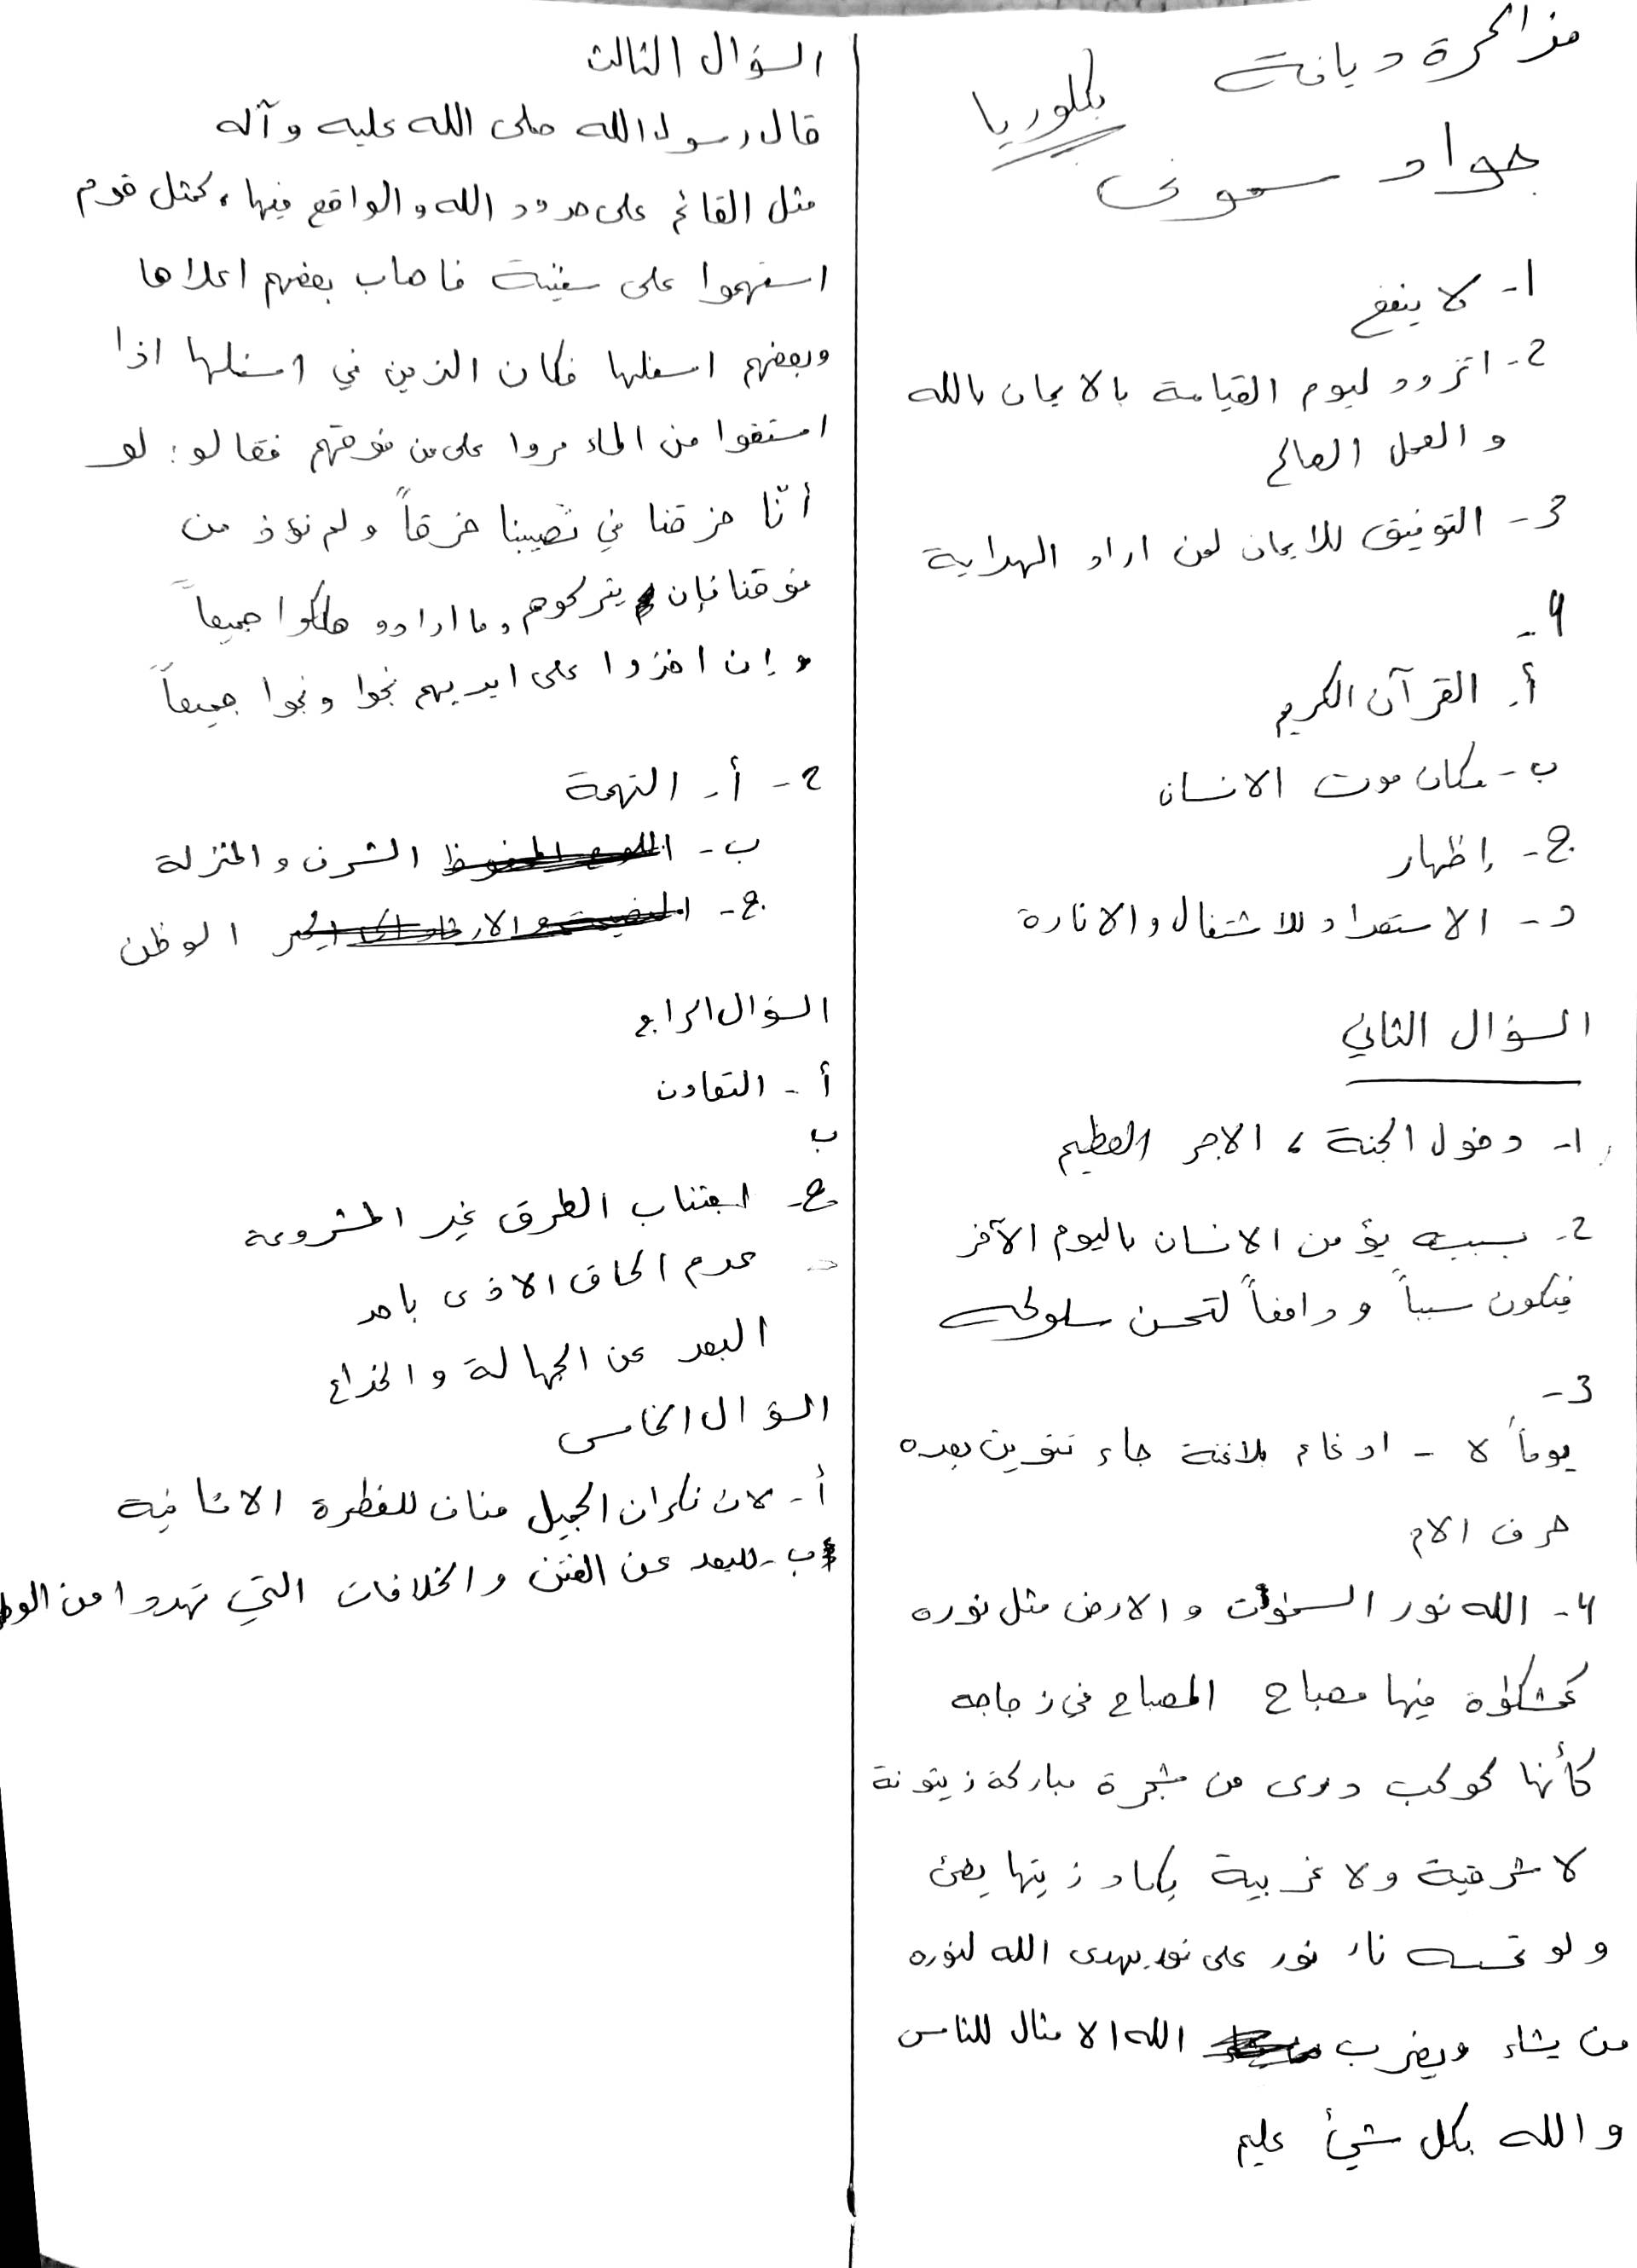 مذاكرة ديانة
بكلوريا
جواد
1- لا ينفع
2- اتزود ليوم القيامة بالايمان بالله
والعمل الصالح
3- التوفيق للايمان لمن اراد الهداية
4-
أ- القرآن الكريم
ب- مكان موت الانسان
ج- إظهار
د- الاستعداد للاشتعال والانارة
السؤال الثاني
1- دخول الجنة ، الاجر العظيم
2- بسببه يؤمن الانسان باليوم الآخر
فيكون سبباً ودافعاً لتحسن سلوكه
3-
يوماً لا - ادغام بلاغنة جاء تنوين بعده
حرف الام
4- الله نور السموات والارض مثل نوره
كمشكوة فيها مصباح المصباح في زجاجه
كأنها كوكب درى من شجرة مباركة زيتونة
لا شرقية ولا غربية يكاد زيتها يضئ
ولو تمسه نار نور على نور يهدى الله لنوره
من يشاء ويضرب الله الامثال للناس
والله بكل شيئ عليم
السؤال الثالث
قال رسول الله صلى الله عليه وآله
مثل القائم على حدود الله والواقع فيها، كمثل قوم
استهموا على سفينة فاصاب بعضهم اعلاها
وبعضهم اسفلها فكان الذين في اسفلها اذا
استقوا من الماء مروا على من فوقهم فقالو : لو
أنّا خرقنا في نصيبنا خرقاً ولم نؤذ من
فوقنا فإن يتركوهم وما ارادو هلكوا جميعاً
وإن اخذوا على ايديهم نجوا ونجوا جميعاً
2- أ- التهمة
ب- الشرف والمنزلة
ج- الوطن
السؤال الرابع
أ- التعاون
ب
ج- اجتناب الطرق غير المشروعة
عدم الحاق الاذى باحد
البعد عن الجهالة والخداع
السؤال الخامس
أ- لان نكران الجميل مناف للفطرة الانسانية
ب- للبعد عن الفتن والخلافات التي تهدد امن